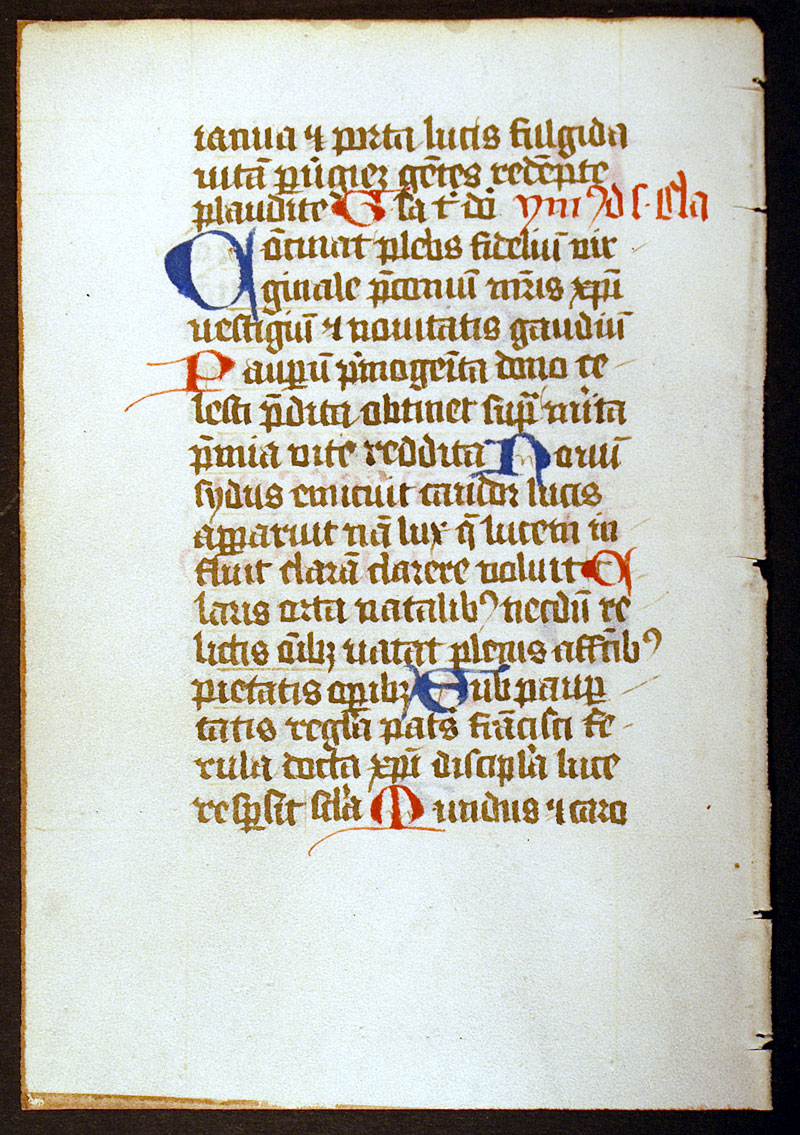 ianua ⁊ porta lucis fulgida
uitā ꝑ uirgīeꝫ gētes redēpte
plaudite Gl̄a t᷑ dōi ymꝰ d̄ s. Cla
Cōcinat plebs fideliū uir
ginale p̄coniū mr̄is xp̄i
uestigiū ⁊ nouitatis gaudiū
Pauꝑū p̄mogenita dono ce
lesti p̄dita obtinet sup̄ merita
p̄mia uite reddita Nouū
sydus emicuit candor lucis
apparuit nā lux q̄ lucem in
fluit clarā clarere uoluit C
laris orta natalibꝰ necdū re
lictis oīibꝫ uacat plenis affc̄ibꝰ
pietatis oꝑibꝫ Sub pauꝑ
tatis regula pat̄s frācisci fe
rula docta xp̄i discipl̄a luce
resꝑsit scl̄a Mundus ⁊ caro